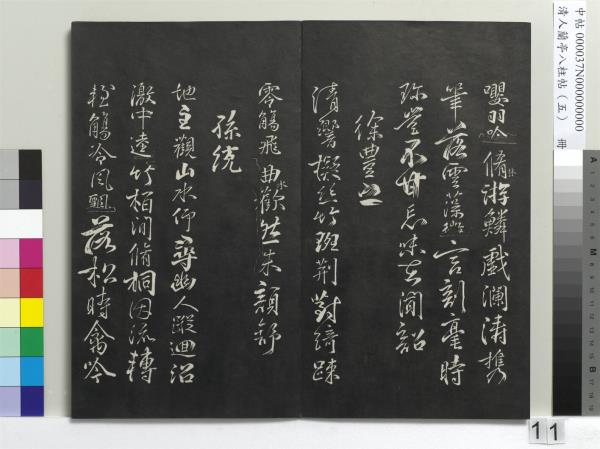 中帖 000037N000000000
清人蘭亭八柱帖（五） 冊
嚶羽吟脩竹游鱗戲瀾濤携
筆落雲藻微言剖毫時
珍豈不甘忘味在聞韶
徐豐之
清響擬絲竹班荊對綺疎
零觴飛曲水歡然朱顏舒
孫統
地主觀山水仰尋幽人蹤迴沼
激中逵竹栢間脩桐因流轉
輕觴冷風飄落松時禽吟
11